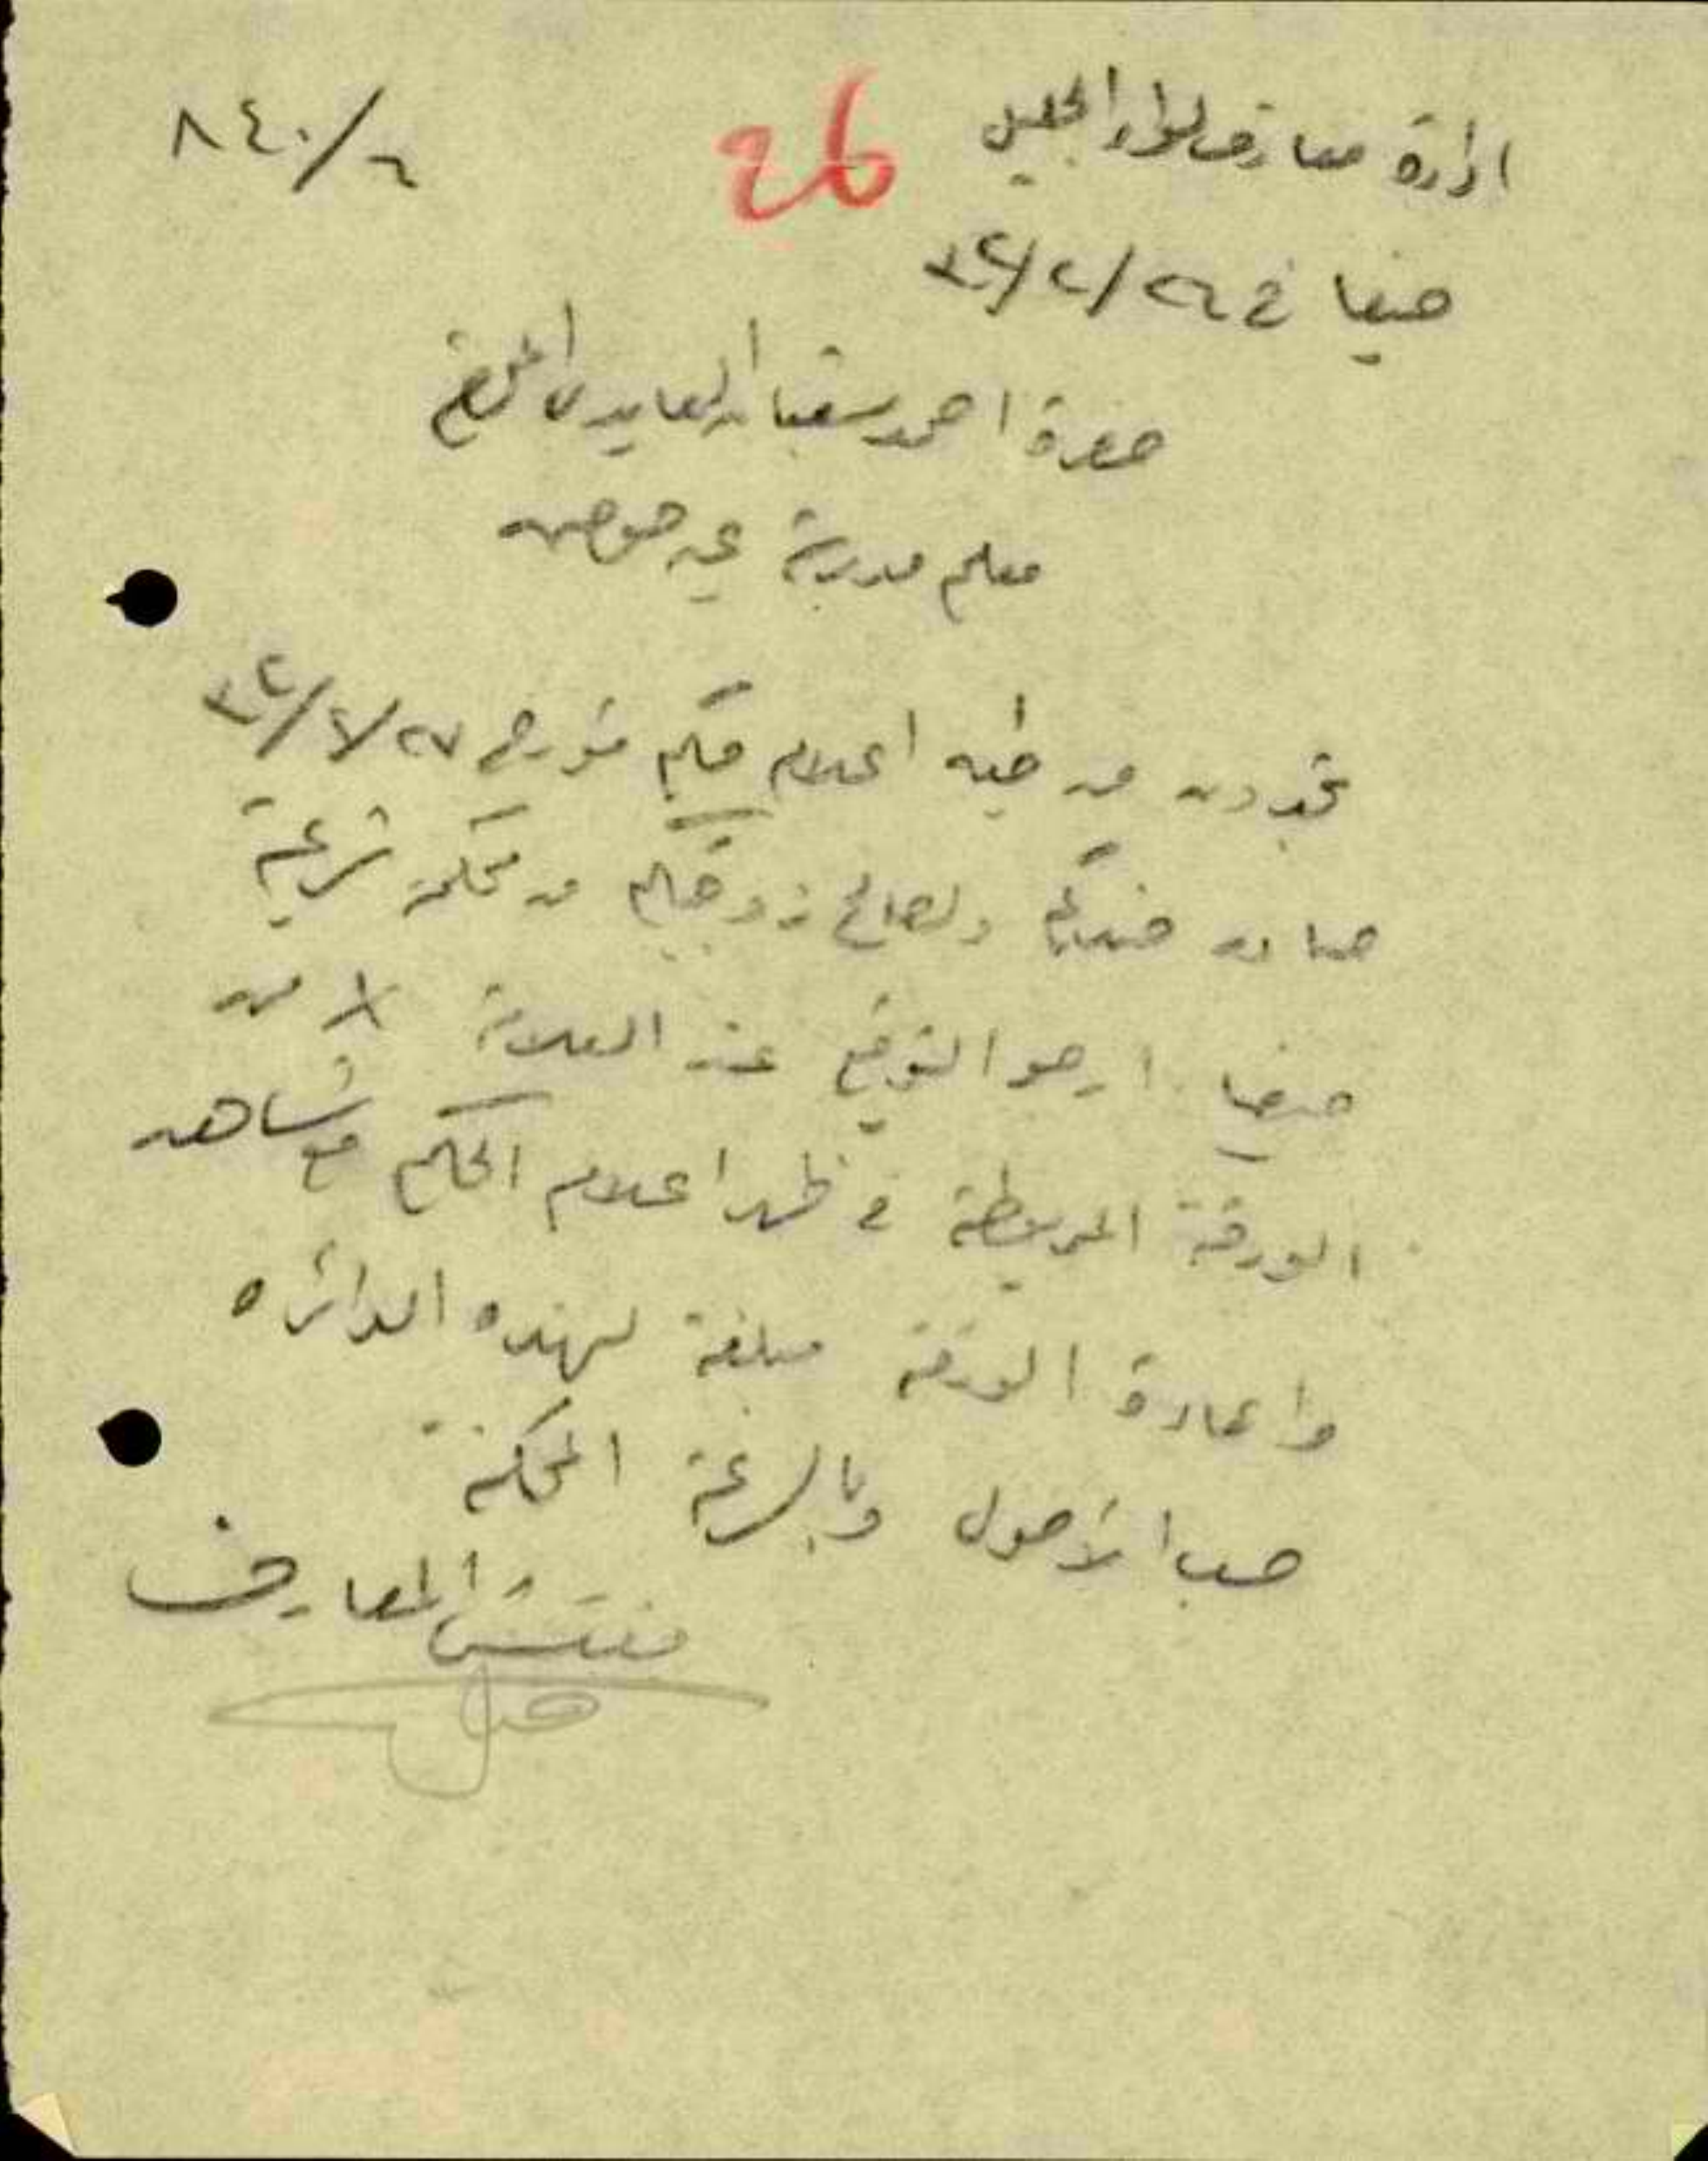 ادارة معارف لواء الجليل
26
٨٤٠/٦
حيفا في
حضرة احمد شعبان العايدي المحترم
معلم مدرسة عين حوض
تجدون من طيه اعلام حكم مؤرخ
صادر ضدكم ولصالح زوجتكم من محكمة شرعية
حيفا ارجو التوقيع عند العلامة X من
الورقة المربوطة في ظهر اعلام الحكم مع شاهد
واعادة الورقة مبلغة لهذه الدائره
حسب الأصول وبالسرعة الممكنة
مفتش المعارف